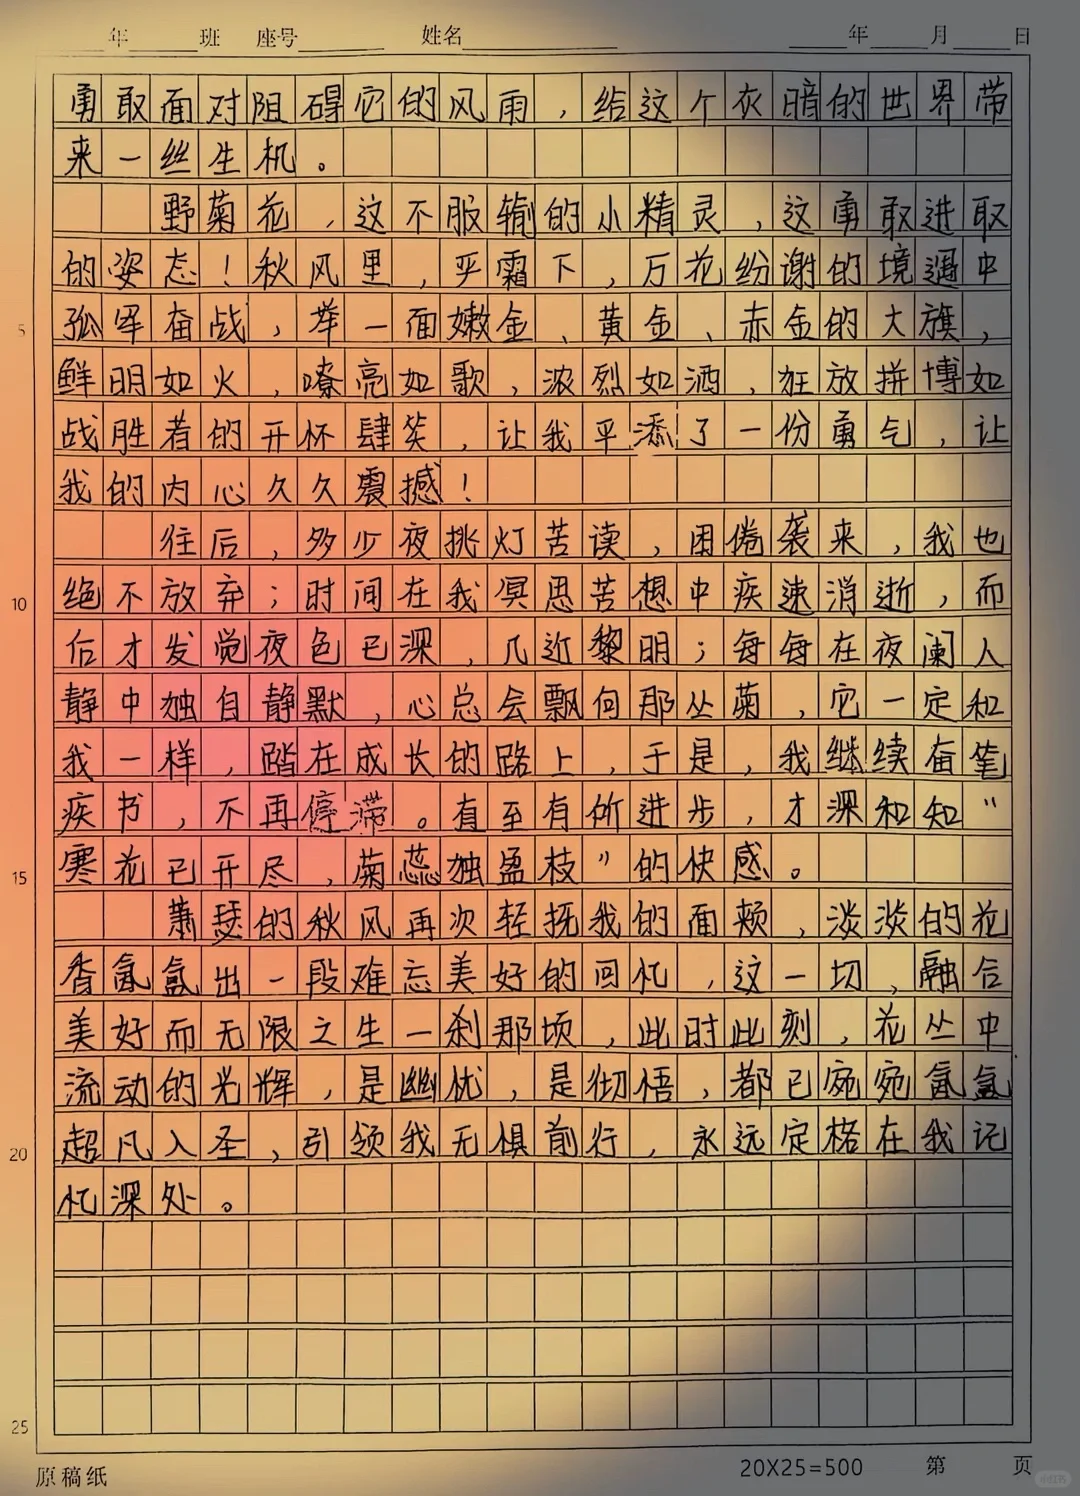 年 班 座号 姓名 年 月 日
勇敢面对阻碍它的风雨，给这个灰暗的世界带
来一丝生机。
野菊花，这不服输的小精灵，这勇敢进取
的姿态！秋风里，严霜下，万花纷谢的境遇中
5 孤军奋战，举一面嫩金、黄金、赤金的大旗，
鲜明如火，嘹亮如歌，浓烈如酒，狂放拼博如
战胜者的开怀肆笑，让我平添了一份勇气，让
我的内心久久震撼！
往后，多少夜挑灯苦读，困倦袭来，我也
10 绝不放弃；时间在我冥思苦想中疾速消逝，而
后才发觉夜色已深，几近黎明；每每在夜阑人
静中独自静默，心总会飘向那丛菊，它一定和
我一样，踏在成长的路上，于是，我继续奋笔
疾书，不再停滞。直至有所进步，才深和知“
15 寒花已开尽，菊蕊独盈枝”的快感。
萧瑟的秋风再次轻抚我的面颊，淡淡的花
香氤氲出一段难忘美好的回忆，这一切，融合
美好而无限之生一刹那顷，此时此刻，花丛中
流动的光辉，是幽忧，是彻悟，都已宛宛氤氲
20 超凡入圣，引领我无惧前行，永远定格在我记
忆深处。
25
原稿纸 20X25=500 第 页
小红书